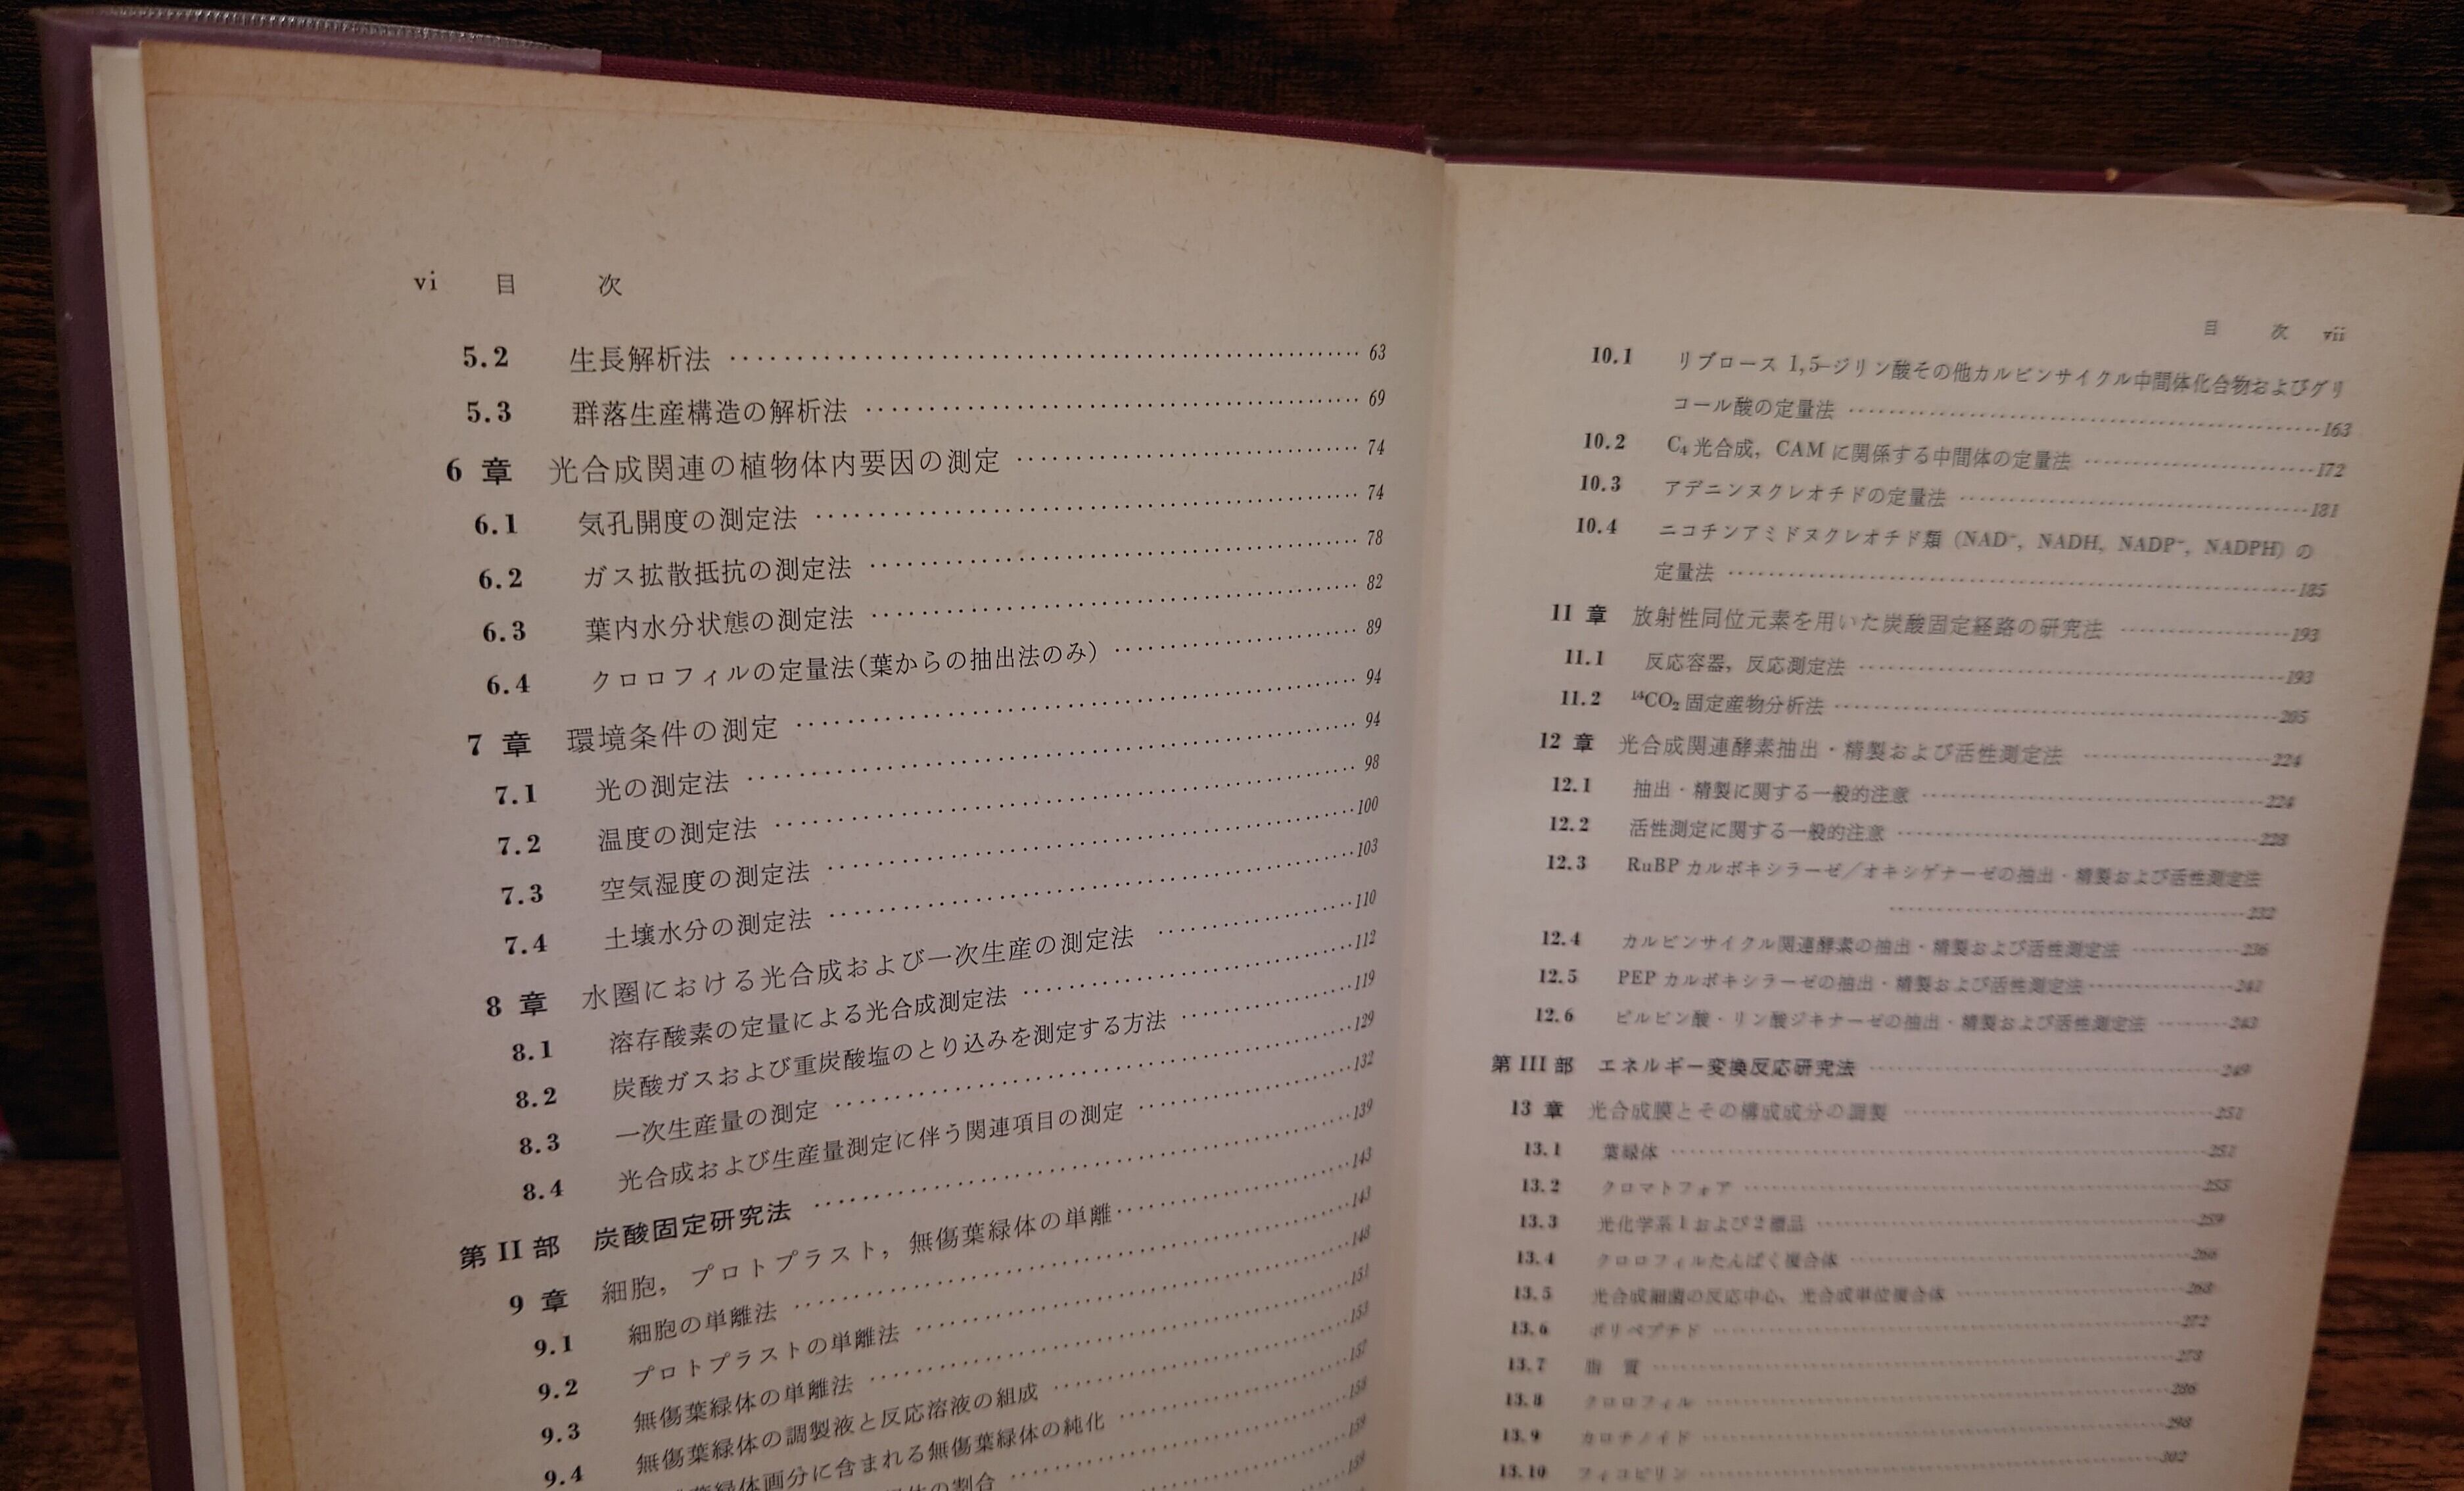 vi 目 次
5.2 生長解析法 63
5.3 群落生産構造の解析法 69
6 章 光合成関連の植物体内要因の測定 74
6.1 気孔開度の測定法 74
6.2 ガス拡散抵抗の測定法 78
6.3 葉内水分状態の測定法 82
6.4 クロロフィルの定量法(葉からの抽出法のみ) 89
7 章 環境条件の測定 94
7.1 光の測定法 94
7.2 温度の測定法 98
7.3 空気湿度の測定法 100
7.4 土壌水分の測定法 103
8 章 水圏における光合成および一次生産の測定法 110
8.1 溶存酸素の定量による光合成測定法 112
8.2 炭酸ガスおよび重炭酸塩のとり込みを測定する方法 119
8.3 一次生産量の測定 129
8.4 光合成および生産量測定に伴う関連項目の測定 132
第 II 部 炭酸固定研究法 139
9 章 細胞，プロトプラスト，無傷葉緑体の単離 143
9.1 細胞の単離法 143
9.2 プロトプラストの単離法 148
9.3 無傷葉緑体の単離法 151
9.4 無傷葉緑体の調製液と反応溶液の組成 153
葉緑体画分に含まれる無傷葉緑体の純化 157
の割合 158
159
159
目 次 vii
10.1 リブロース 1,5-ジリン酸その他カルビンサイクル中間体化合物およびグリ
コール酸の定量法 163
10.2 C₄ 光合成，CAM に関係する中間体の定量法 172
10.3 アデニンヌクレオチドの定量法 181
10.4 ニコチンアミドヌクレオチド類 (NAD⁺, NADH, NADP⁺, NADPH) の
定量法 185
11 章 放射性同位元素を用いた炭酸固定経路の研究法 193
11.1 反応容器，反応測定法 193
11.2 ¹⁴CO₂ 固定産物分析法 205
12 章 光合成関連酵素抽出・精製および活性測定法 224
12.1 抽出・精製に関する一般的注意 224
12.2 活性測定に関する一般的注意 228
12.3 RuBP カルボキシラーゼ／オキシゲナーゼの抽出・精製および活性測定法
232
12.4 カルビンサイクル関連酵素の抽出・精製および活性測定法 236
12.5 PEP カルボキシラーゼの抽出・精製および活性測定法 241
12.6 ピルビン酸・リン酸ジキナーゼの抽出・精製および活性測定法 243
第 III 部 エネルギー変換反応研究法 249
13 章 光合成膜とその構成成分の調製 251
13.1 葉緑体 251
13.2 クロマトフォア 255
13.3 光化学系 1 および 2 標品 259
13.4 クロロフィルたんぱく複合体 266
13.5 光合成細菌の反応中心，光合成単位複合体 268
13.6 ポリペプチド 272
13.7 脂 質 278
13.8 クロロフィル 286
13.9 カロチノイド 298
13.10 フィコビリン 302